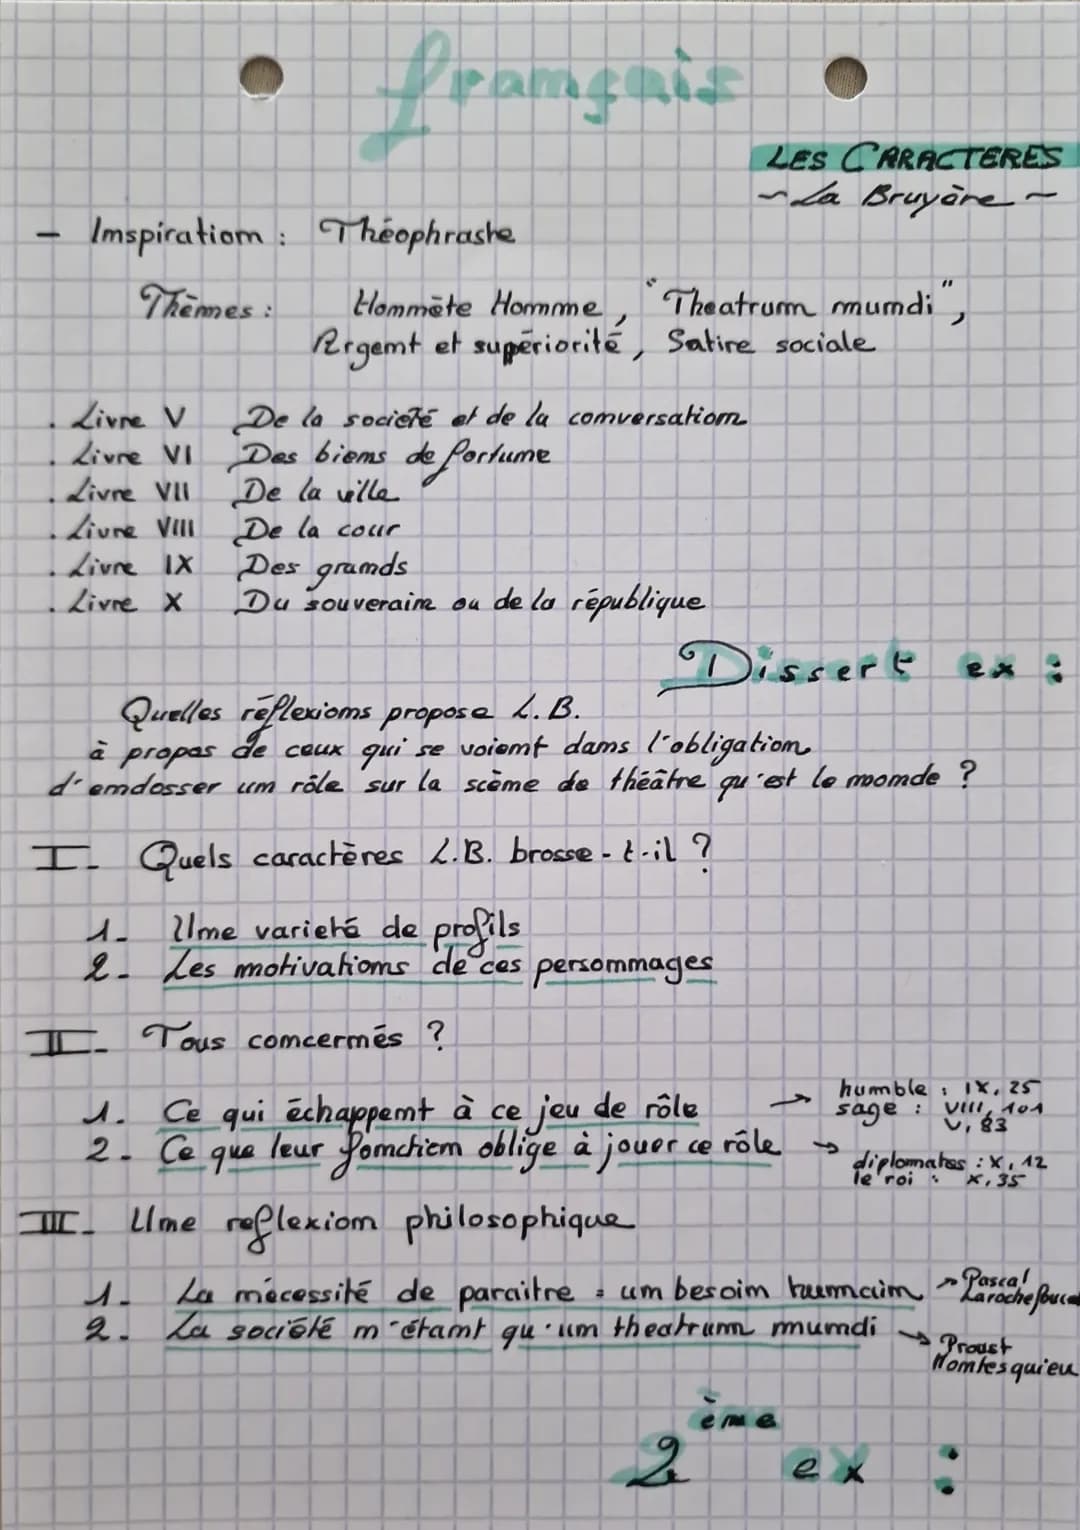 français
LES CARACTERES
~ La Bruyère ~
- Inspiration : Théophraste
Thèmes : Honnête Homme, "Theatrum mundi",
Argent et supériorité, Satire sociale
. Livre V De la société et de la conversation
. Livre VI Des biens de fortune
. Livre VII De la ville
. Livre VIII De la cour
. Livre IX Des grands
. Livre X Du souverain ou de la république
Dissert ex :
Quelles réflexions propose L.B.
à propos de ceux qui se voient dans l'obligation
d'endosser un rôle sur la scène de théâtre qu'est le monde ?
I- Quels caractères L.B. brosse-t-il ?
1- Une varieté de profils
2- Les motivations de ces personnages
II- Tous concernés ?
1. Ce qui échappent à ce jeu de rôle → humble : IX, 25
sage : VIII, 101
V, 83
2- Ce que leur fonction oblige à jouer ce rôle → diplomates : X, 12
le roi : X, 35
III- Une reflexion philosophique
1- La nécessité de paraitre = un besoin humain → Pascal
Larochefoucal
2. La société n'étant qu'un theatrum mundi → Proust
Montesquieu
2ème ex :